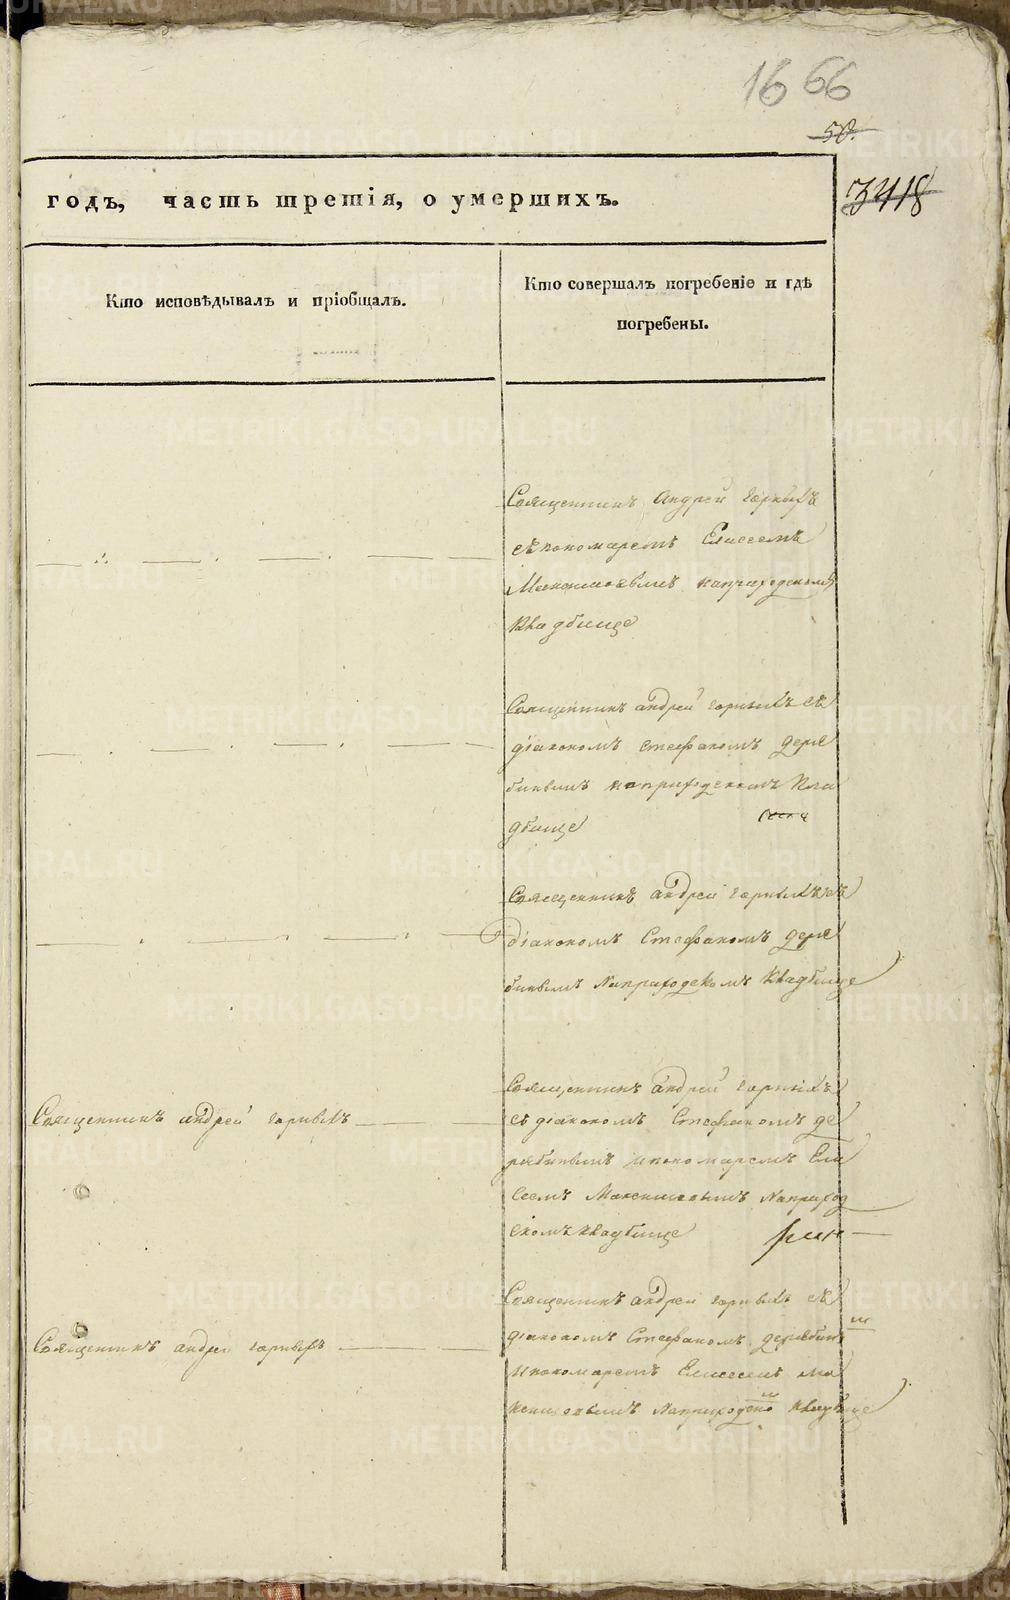 1666
50.
3418
годъ, часть третія, о умершихъ.
Кто исповѣдывалъ и пріобщалъ.
Кто совершалъ погребеніе и гдѣ
погребены.
Священникъ Андрей Горныхъ
съ пономаремъ Елисеемъ
Максимовымъ наприходскомъ
кладбище
Священникъ андрей горныхъ съ
діакономъ стефаномъ деря
бинымъ наприходскомъ кла
дбище
Священникъ андрей горныхъ съ
діакономъ Стефаномъ деря
бинымъ Наприходскомъ кладбище
Священникъ андрей горныхъ
Священникъ андрей горныхъ
съ діакономъ Стефаномъ де
рябинымъ ипономаремъ Ели
сеемъ Максимовымъ Наприход
скомъ кладбище
Священникъ андрей горныхъ
Священникъ андрей горныхъ съ
діакономъ Стефаномъ дерябин
м
ипономаремъ Елисеемъ ма
ксимовымъ Наприходско кладбище
м
METRIKI.GASO-URAL.RU